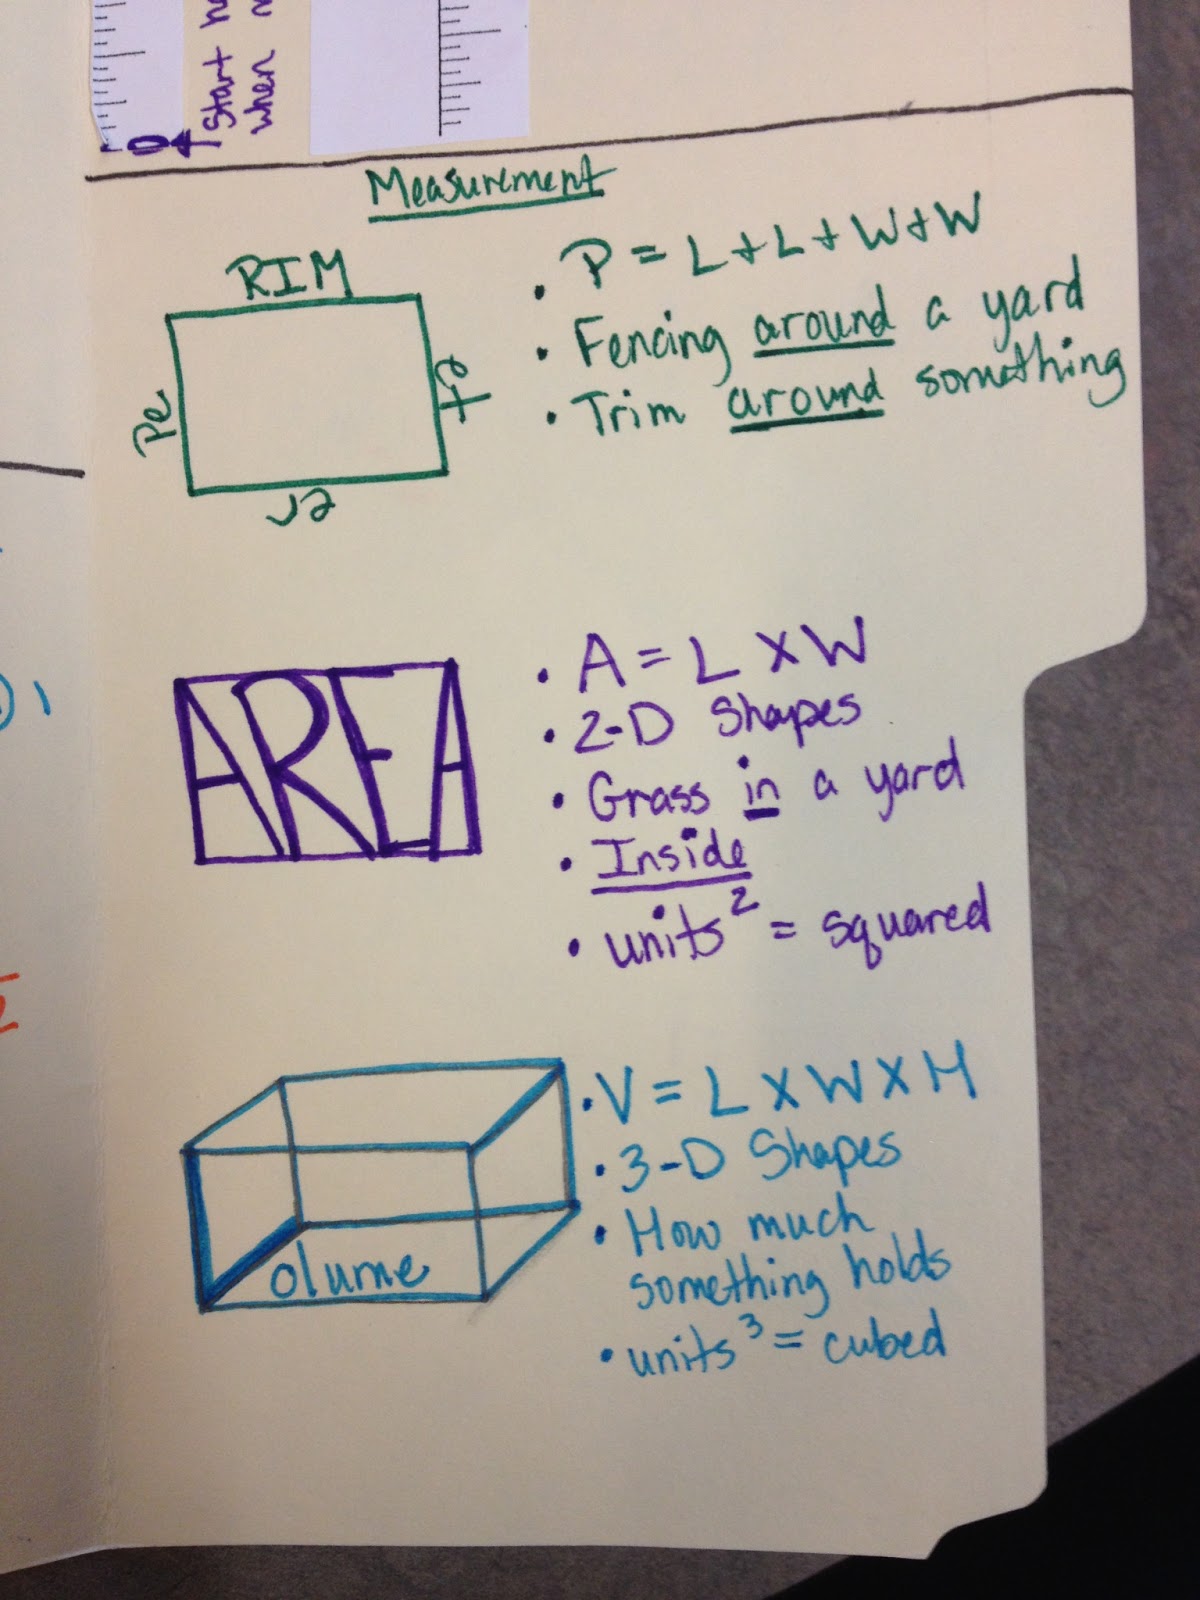 0
Start
when
Measurement
Pe
RIM
et
er
• P = L + L + W + W
• Fencing around a yard
• Trim around something
AREA
• A = L X W
• 2-D Shapes
• Grass in a yard
• Inside
• units² = squared
olume
• V = L X W X H
• 3-D Shapes
• How much
something holds
• units³ = cubed
1